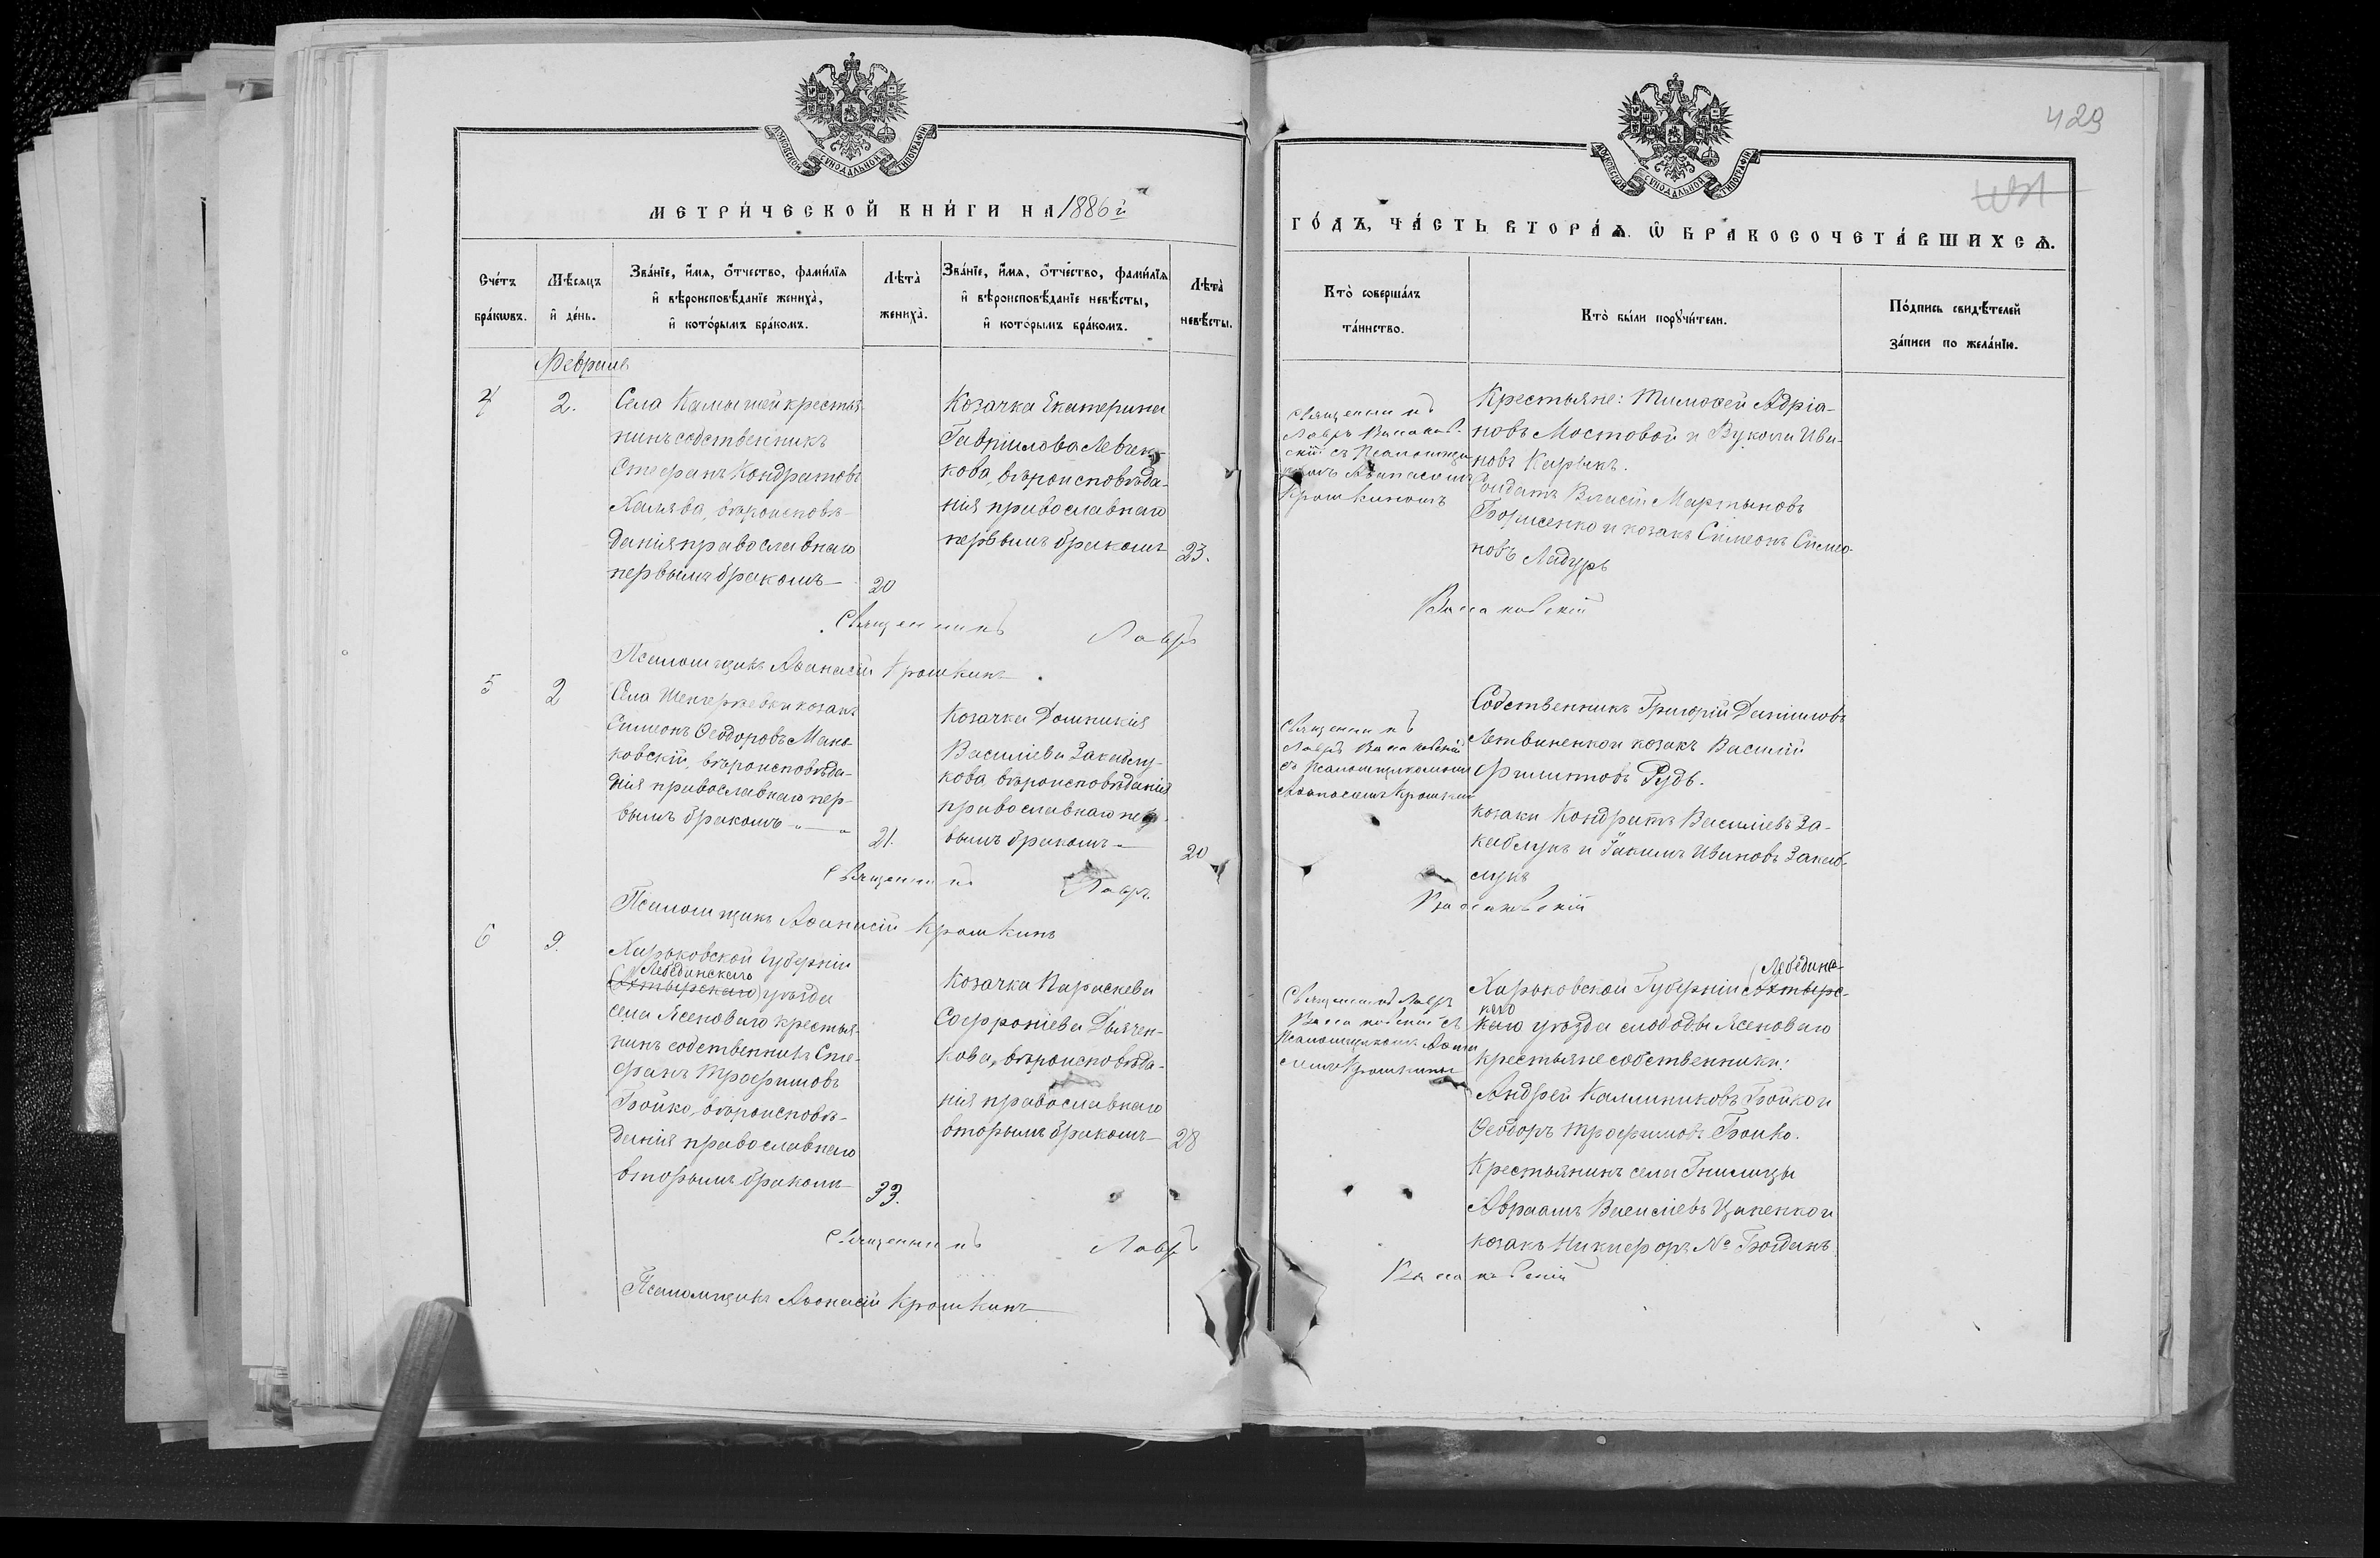 МОСКОВСКОЙ СУНОДАЛЬНОЙ ТИПОГРАФІИ
МЕТРИ́ЧЕСКОЙ КНИ́ГИ НА 1886й
Сче́тъ бра́кѡвъ.
Мѣ́сяцъ и҆ де́нь.
Зва́нїе, и҆́мѧ, о҆́тчество, фами́лїѧ
и҆ вѣроисповѣ́данїе жениха̀,
и҆ кото́рымъ бра́комъ.
Лѣта̀ жениха̀.
Зва́нїе, и҆́мѧ, о҆́тчество, фами́лїѧ
и҆ вѣроисповѣ́данїе невѣ́сты,
и҆ кото́рымъ бра́комъ.
Лѣта̀ невѣ́сты.
Февраль
4
2.
Села Камышей крестья-
нинъ собственникъ
Стефанъ Кондратовъ
Халява, вѣроисповѣ-
данія православнаго
первымъ бракомъ
20
Козачка Екатерина
Гавріилова Левчен-
кова, вѣроисповѣда-
нія православнаго
первымъ бракомъ
23.
Священникъ Лавръ
Псаломщикъ Аѳанасій Крошкинъ
5
2
Села козакъ
Симеонъ Ѳеодоровъ Мань-
ковскій, вѣроисповѣда-
нія православнаго пер-
вымъ бракомъ
21.
Козачка Домникія
Василіева Закаблу-
кова вѣроисповѣданія
православнаго пер-
вымъ бракомъ
20
Священникъ Лавръ
Псаломщикъ Аѳанасій Крошкинъ
6
9.
Харьковской Губерніи
Лебединскаго
(Ахтырскаго) уѣзда
села Ясеноваго крестья-
нинъ собственникъ Сте-
фанъ Трофимовъ
Бойко, вѣроисповѣ-
данія православнаго
вторымъ бракомъ
33.
Козачка Параскева
Софроніева Дьячен-
кова, вѣроисповѣда-
нія православнаго
вторымъ бракомъ
28
Священникъ Лавръ
Псаломщикъ Аѳанасій Крошкинъ
429
МОСКОВСКОЙ СУНОДАЛЬНОЙ ТИПОГРАФІИ
ГО́ДЪ, ЧА́СТЬ ВТОРА́Ѧ, Ѽ БРАКОСОЧЕТА́ВШИХСѦ.
Кто̀ соверша́лъ
та́инство.
Кто̀ бы́ли порꙋчи́тели.
По́дпись свидѣ́телей
за́писи по жела́нїю.
Священникъ
Лавръ Вассаков-
скій съ Псаломщи-
комъ Аѳанасіемъ
Крошкинымъ
Крестьяне: Тимоѳей Адріа-
новъ Мостовой и Вуколъ Ива-
новъ
Солдатъ Власій Мартыновъ
Борисенко и козакъ Симеонъ Симео-
новъ Ладуръ
Вассаковскій
Священникъ
Лавръ Вассаковскій
съ Псаломщикомъ
Аѳанасіемъ Крошкин
Собственникъ Григорій Даніиловъ
Литвиненко и козакъ Василій
Филипповъ Рудь.
козаки Кондратъ Василіевъ За-
каблукъ и Іакимъ Ивановъ Закаб-
лукъ
Вассаковскій
Священникъ Лавръ
Вассаковскій съ
Псаломщикомъ Аѳана
сіемъ Крошкинымъ
Лебединс-
Харьковской Губерніи (Ахтырс-
каго
каго уѣзда слободы Ясеноваго
крестьяне собственники:
Андрей Каллиниковъ Бойко и
Ѳеодоръ Трофимовъ Бойко.
Крестьянинъ села Гнилицы
Авраамъ Василіевъ Цапенко и
козакъ Никифоръ № Богданъ
Вассаковскій